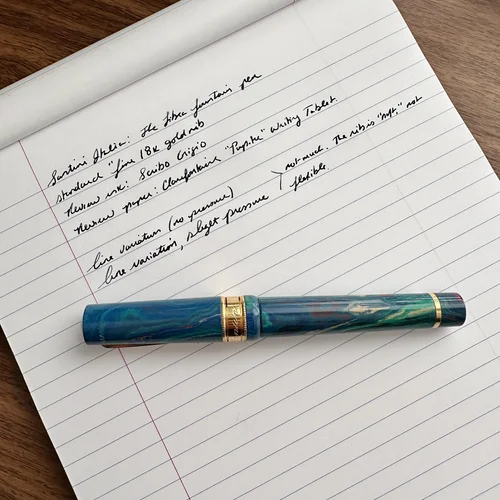 Santini Italia: the Libra fountain pen
standard "fine" 18k gold nib
Review ink: Scribo Grigio
Review paper: Clairefontaine "Pupitre" Writing Tablet.
line variation (no pressure)
line variation, slight pressure
not much. The nib is "soft," not
flexible.